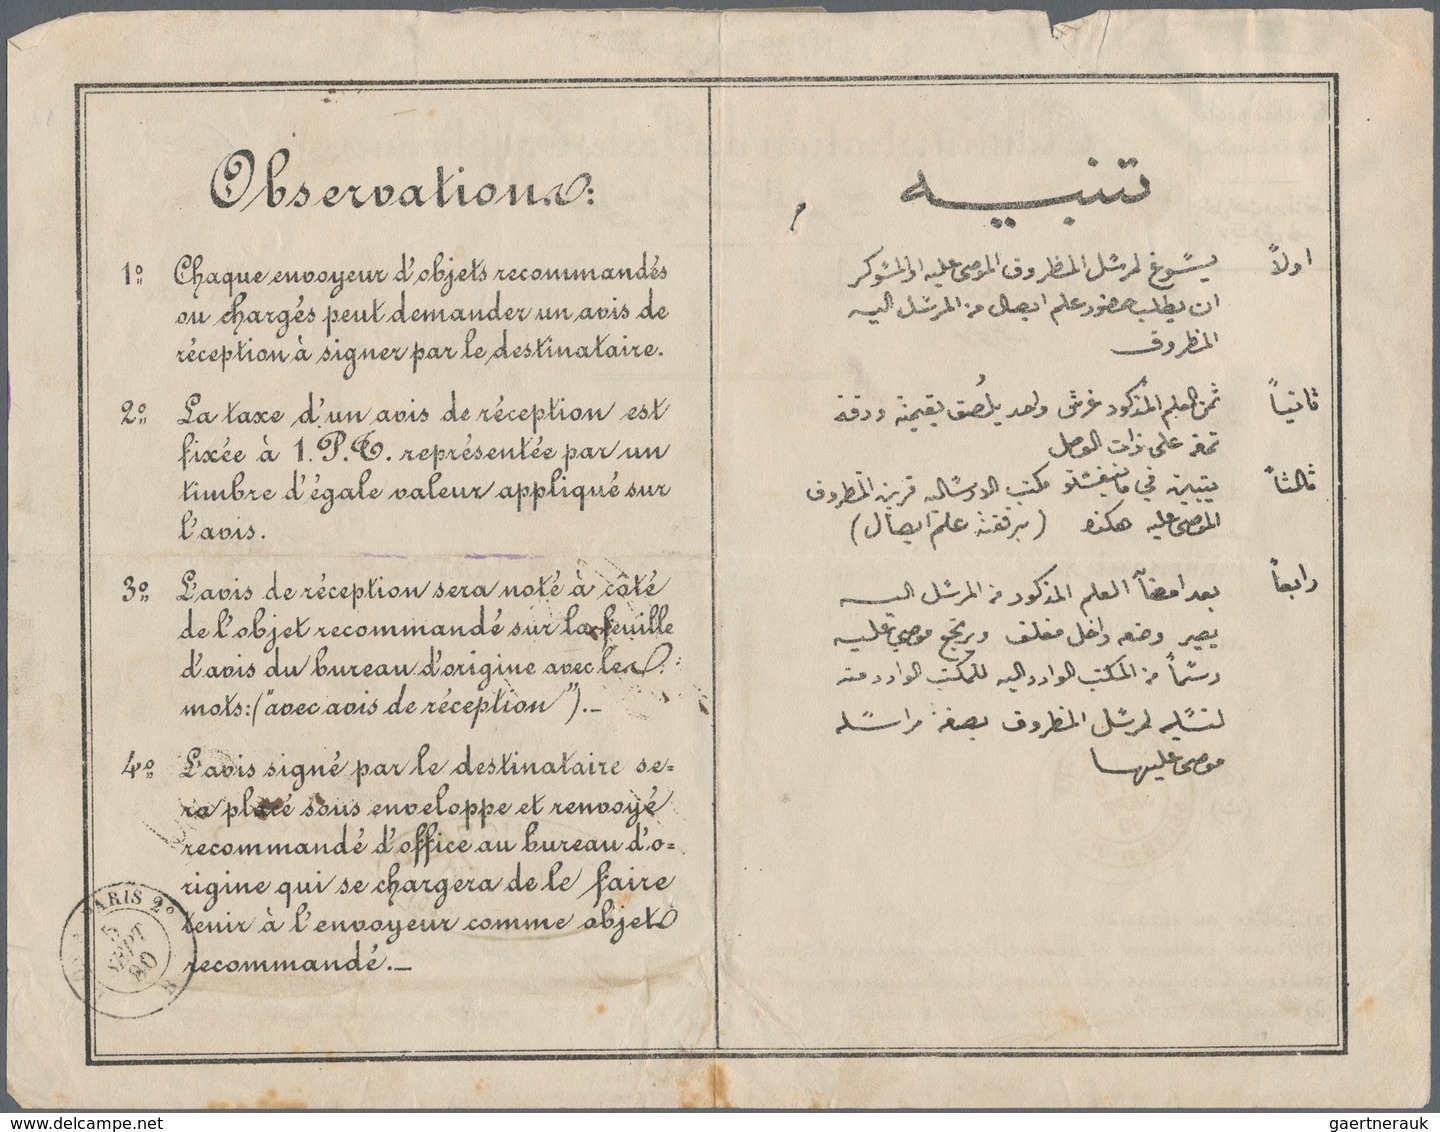 Observations:
1º Chaque envoyeur d'objets recommandés
ou chargés peut demander un avis de
réception à signer par le destinataire.
2º La taxe d'un avis de réception est
fixée à 1. P.T. représentée par un
timbre d'égale valeur appliqué sur
l'avis.
3º L'avis de réception sera noté à côté
de l'objet recommandé sur la feuille
d'avis du bureau d'origine avec les
mots: ("avec avis de réception").—
4º L'avis signé par le destinataire se=
ra placé sous enveloppe et renvoyé
recommandé d'office au bureau d'o=
rigine qui se chargera de le faire
tenir à l'envoyeur comme objet
recommandé.—
PARIS 2º
5
SEPT
80
B
تنبيه
اولاً يسوغ لمرسل المظروف الموصى عليه او المسوكر
ان يطلب حضور علم ايصال من المرسل اليه
المظروف
ثانياً ثمن العلم المذكور غرش واحد يلصق بقيمته ورقة
تمغه على ذات الوصل
ثالثاً يتبين في مكتب الارسالية قرين المظروف
الموصى عليه هكذا (برفقته علم ايصال)
رابعاً بعد امضآ العلم المذكور من المرسل اليه
يصير وضعه داخل مغلف ويرجع موصى عليه
رسماً من المكتب الوارد اليه للمكتب الوارد منه
لتسليمه لمرسل المظروف بصفة مراسله
موصى عليها
gaertnerauk @ delcampe.net